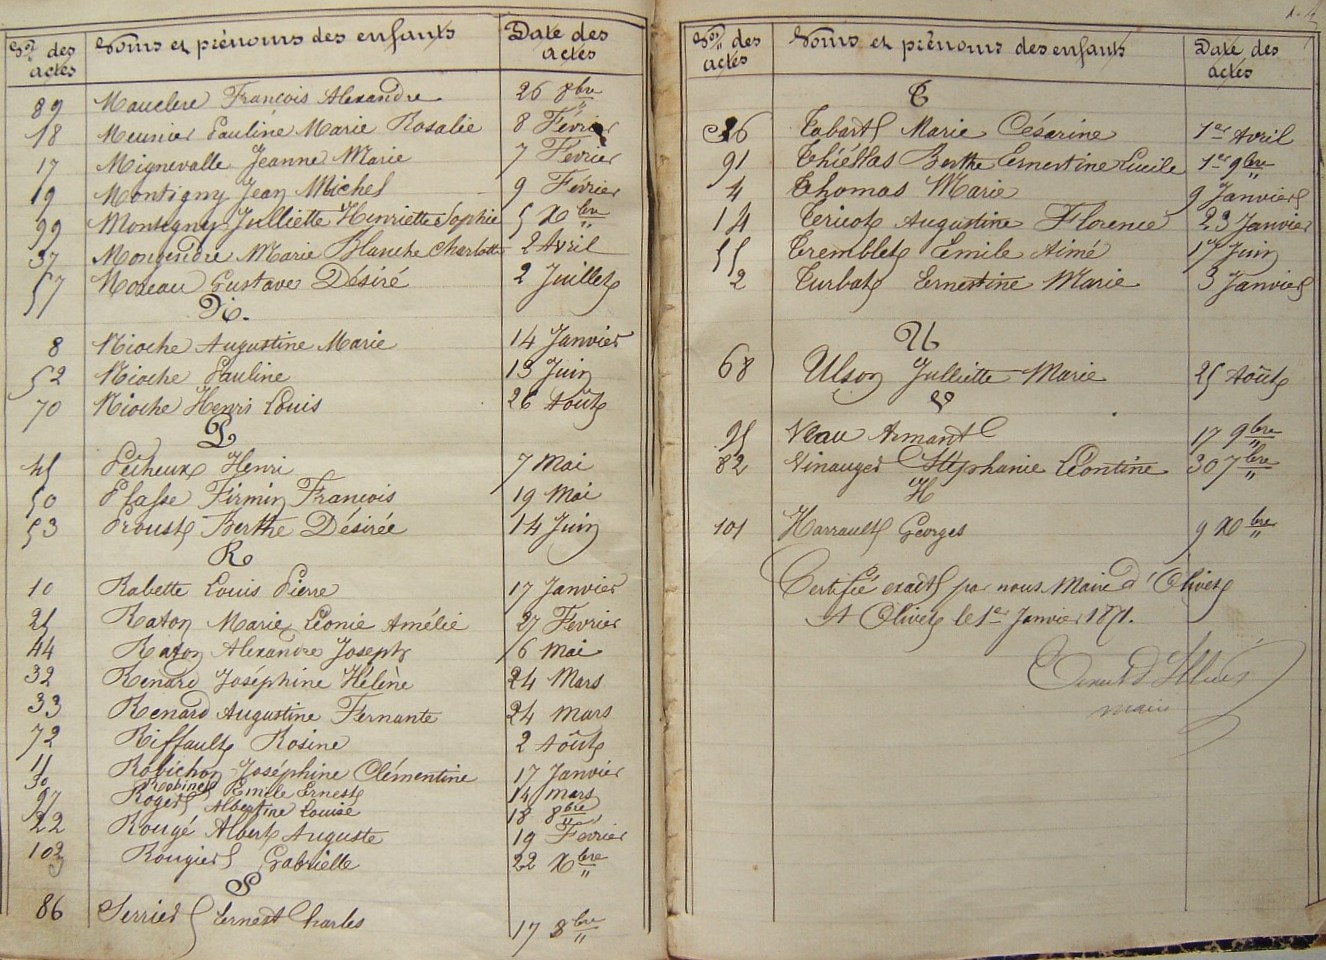 Nos des actes Noms et prénoms des enfants Date des actes
89 Mauclere François Alexandre 26 8bre
18 Meunier Pauline Marie Rosalie 8 Février
17 Mignevalle Jeanne Marie 7 Février
19 Montigny Jean Michel 9 Février
99 Montigny Julliette Henriette Sophie 5 Xbre
37 Mougendre Marie Blanche Charlotte 2 Avril
57 Moreau Gustave Désiré 2 Juillet
N.
8 Nioche Augustine Marie 14 Janvier
52 Nioche Pauline 13 Juin
70 Nioche Henri Louis 26 Août
P
45 Pecheux Henri 7 Mai
50 Plasse Firmin François 19 Mai
53 Proust Berthe Désirée 14 Juin
R
10 Rabette Louis Pierre 17 Janvier
25 Raton Marie Léonie Amélie 27 Février
44 Raton Alexandre Joseph 6 Mai
32 Renard Joséphine Hélène 24 Mars
33 Renard Augustine Fernante 24 Mars
72 Riffault Rosine 2 Août
11 Robichon Joséphine Clémentine 17 Janvier
30 Robinet Emile Ernest 14 Mars
97 Roger Albertine Louise 18 8bre
22 Rougé Albert Auguste 19 Février
102 Rougier Gabrielle 22 Xbre
S
86 Serrier Ernest Charles 17 8bre
Nos des actes Noms et prénoms des enfants Date des actes
T
36 Tabart Marie Césarine 1er Avril
91 Thiéllas Berthe Ernestine Lucile 1er 9bre
4 Thomas Marie 9 Janvier
14 Tericot Augustine Florence 23 Janvier
55 Tremblet Emile Aimé 17 Juin
2 Turbat Ernestine Marie 3 Janvier
U
68 Ulson Julliette Marie 25 Août
V
95 Veau Armant 17 9bre
82 Vinauger Stéphanie Léontine 30 7bre
H
101 Harrault Georges 9 Xbre
Certifié exact par nous Maire d'Olivet
A Olivet le 1er Janvier 1871.
maire